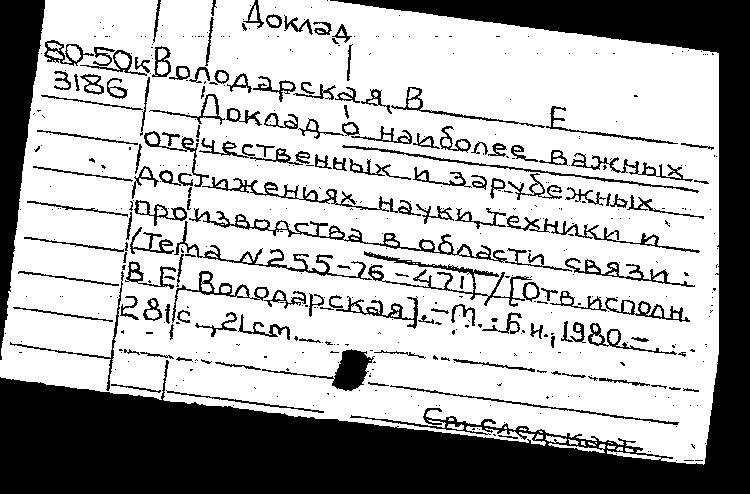 Доклад
80-50к Володарская, В Е
3186
Доклад о наиболее важных
отечественных и зарубежных
достижениях науки, техники и
производства в области связи:
(Тема N255-76-471) / [Отв. исполн.
В.Е. Володарская]. – М.: Б.н., 1980. –
281с., 21см.
См. след. карт.